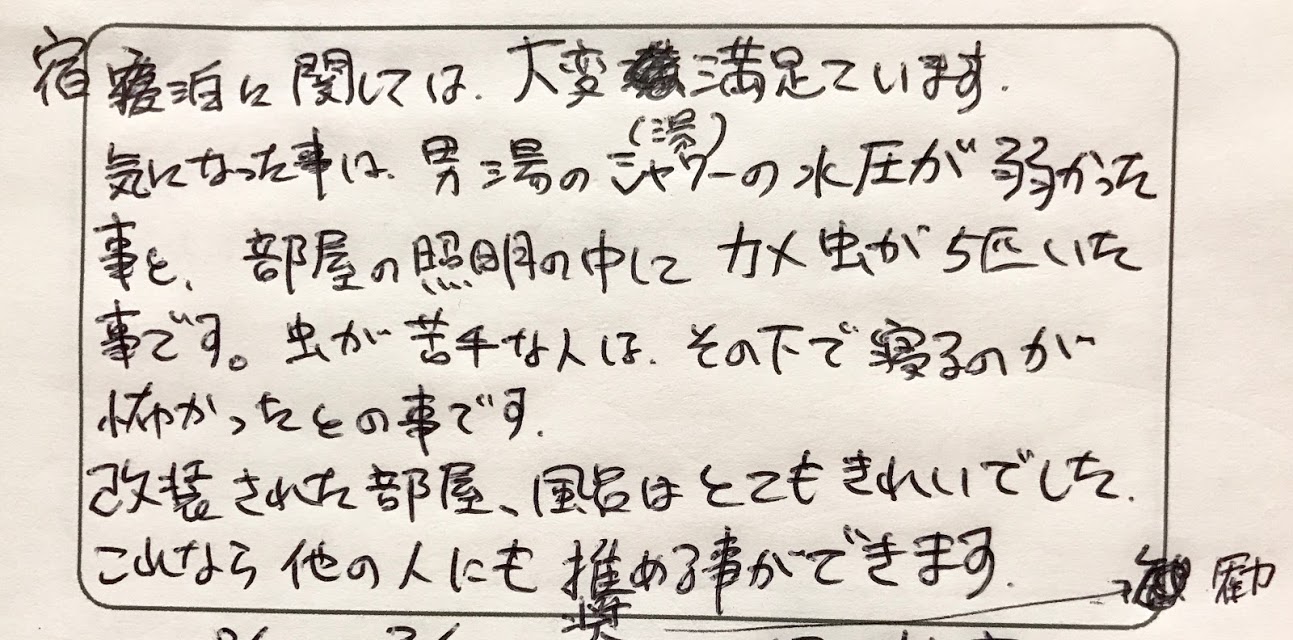 宿泊に関しては、大変満足ています。
気になった事は、男湯のシャワー(湯)の水圧が弱かった
事と、部屋の照明の中にカメ虫が5匹いた
事です。虫が苦手な人は、その下で寝るのが
怖かったとの事です。
改装された部屋、風呂はとてもきれいでした。
これなら他の人にも推める事ができます。
奨
勧